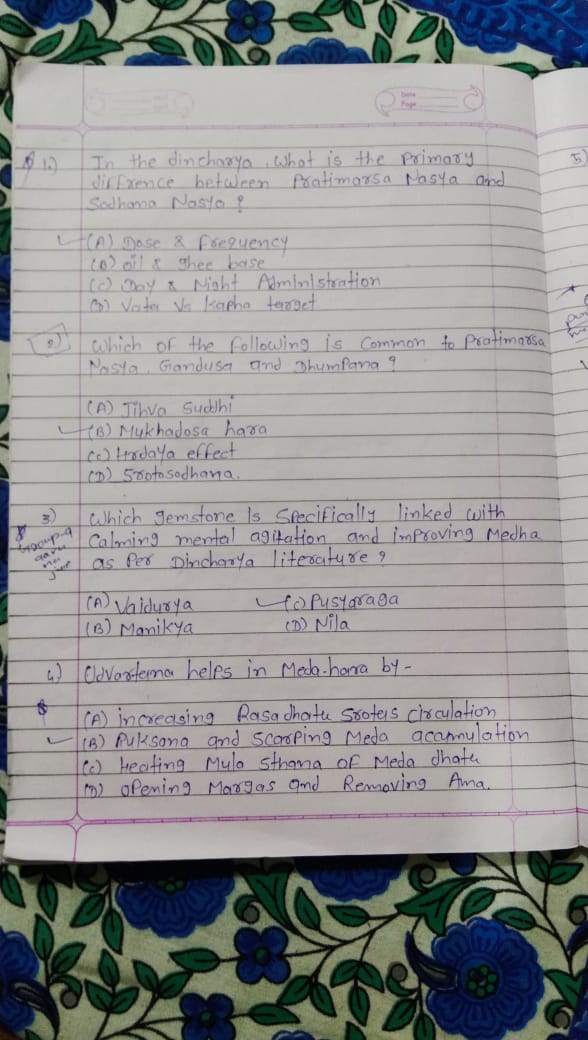 Date
Page
1.) In the dincharya, What is the Primary
diffrence between Pratimarsa Nasya and
Sodhana Nasya ?
(A) Dose & frequency
(B) oil & ghee base
(C) Day & Night Administration
(D) Vata Vs Kapha target
2) Which of the following is Common to Pratimarsa
Nasya, Gandusa and Dhumpana ?
(A) Jihva Suddhi
(B) Mukhadosa hara
(C) Hrdaya effect
(D) Srotosodhana.
3) Which gemstone is Specifically linked with
Calming mental agitation and improving Medha
as Per Dincharya literature ?
(A) Vaidurya (C) Pusyaraga
(B) Manikya (D) Nila
4) Udvartana helps in Meda-hara by -
(A) increasing Rasadhatu Srotas circulation
(B) Ruksana and Scarping Meda accumulation
(C) Heating Mula Sthana of Meda dhatu
(D) opening Margas and Removing Ama.
5)